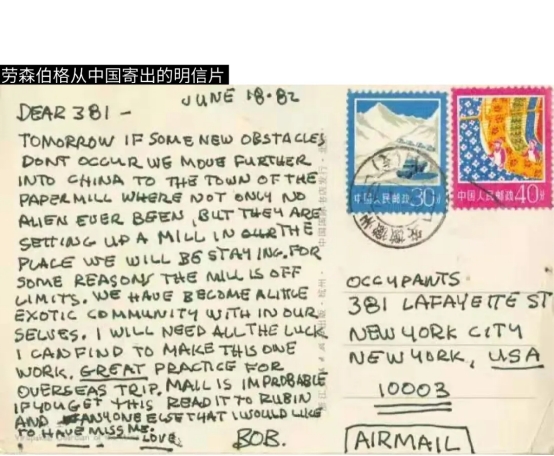 劳森伯格从中国寄出的明信片
JUNE 18·82
DEAR 381 –
TOMORROW IF SOME NEW OBSTACLES
DONT OCCUR WE MOVE FURTHER
INTO CHINA TO THE TOWN OF THE
PAPERMILL WHERE NOT ONLY NO
ALIEN EVER BEEN, BUT THEY ARE
SETTING UP A MILL IN OUR THE
PLACE WE WILL BE STAYING. FOR
SOME REASONS THE MILL IS OFF
LIMITS. WE HAVE BECOME A LITTLE
EXOTIC COMMUNITY WITH IN OUR
SELVES. I WILL NEED ALL THE LUCK
I CAN FIND TO MAKE THIS ONE
WORK. GREAT PRACTICE FOR
OVERSEAS TRIP. MAIL IS IMPROBABLE
IF YOU GET THIS READ IT TO RUBIN
AND ANYONE ELSE THAT I WOULD LIKE
TO HAVE MISS ME. LOVE,
BOB.
中国人民邮政 30分
中国人民邮政 40分
安徽
OCCUPANTS
381 LAFAYETTE ST
NEW YORK CITY
NEW YORK, USA
10003
AIRMAIL